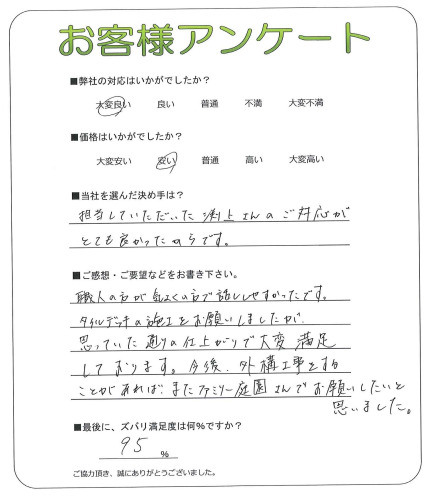 お客様アンケート
■弊社の対応はいかがでしたか？
大変良い 良い 普通 不満 大変不満
■価格はいかがでしたか？
大変安い 安い 普通 高い 大変高い
■当社を選んだ決め手は？
担当していただいた渕上さんのご対応が
とても良かったからです。
■ご感想・ご要望などをお書き下さい。
職人の方が気さくの方で話しやすかったです。
タイルデッキの施工をお願いしましたが、
思っていた通りの仕上がりで大変満足
しております。今後、外構工事をする
ことがあれば、またファミリー庭園さんでお願いしたいと
思いました。
■最後に、ズバリ満足度は何%ですか？
95 %
ご協力頂き、誠にありがとうございました。